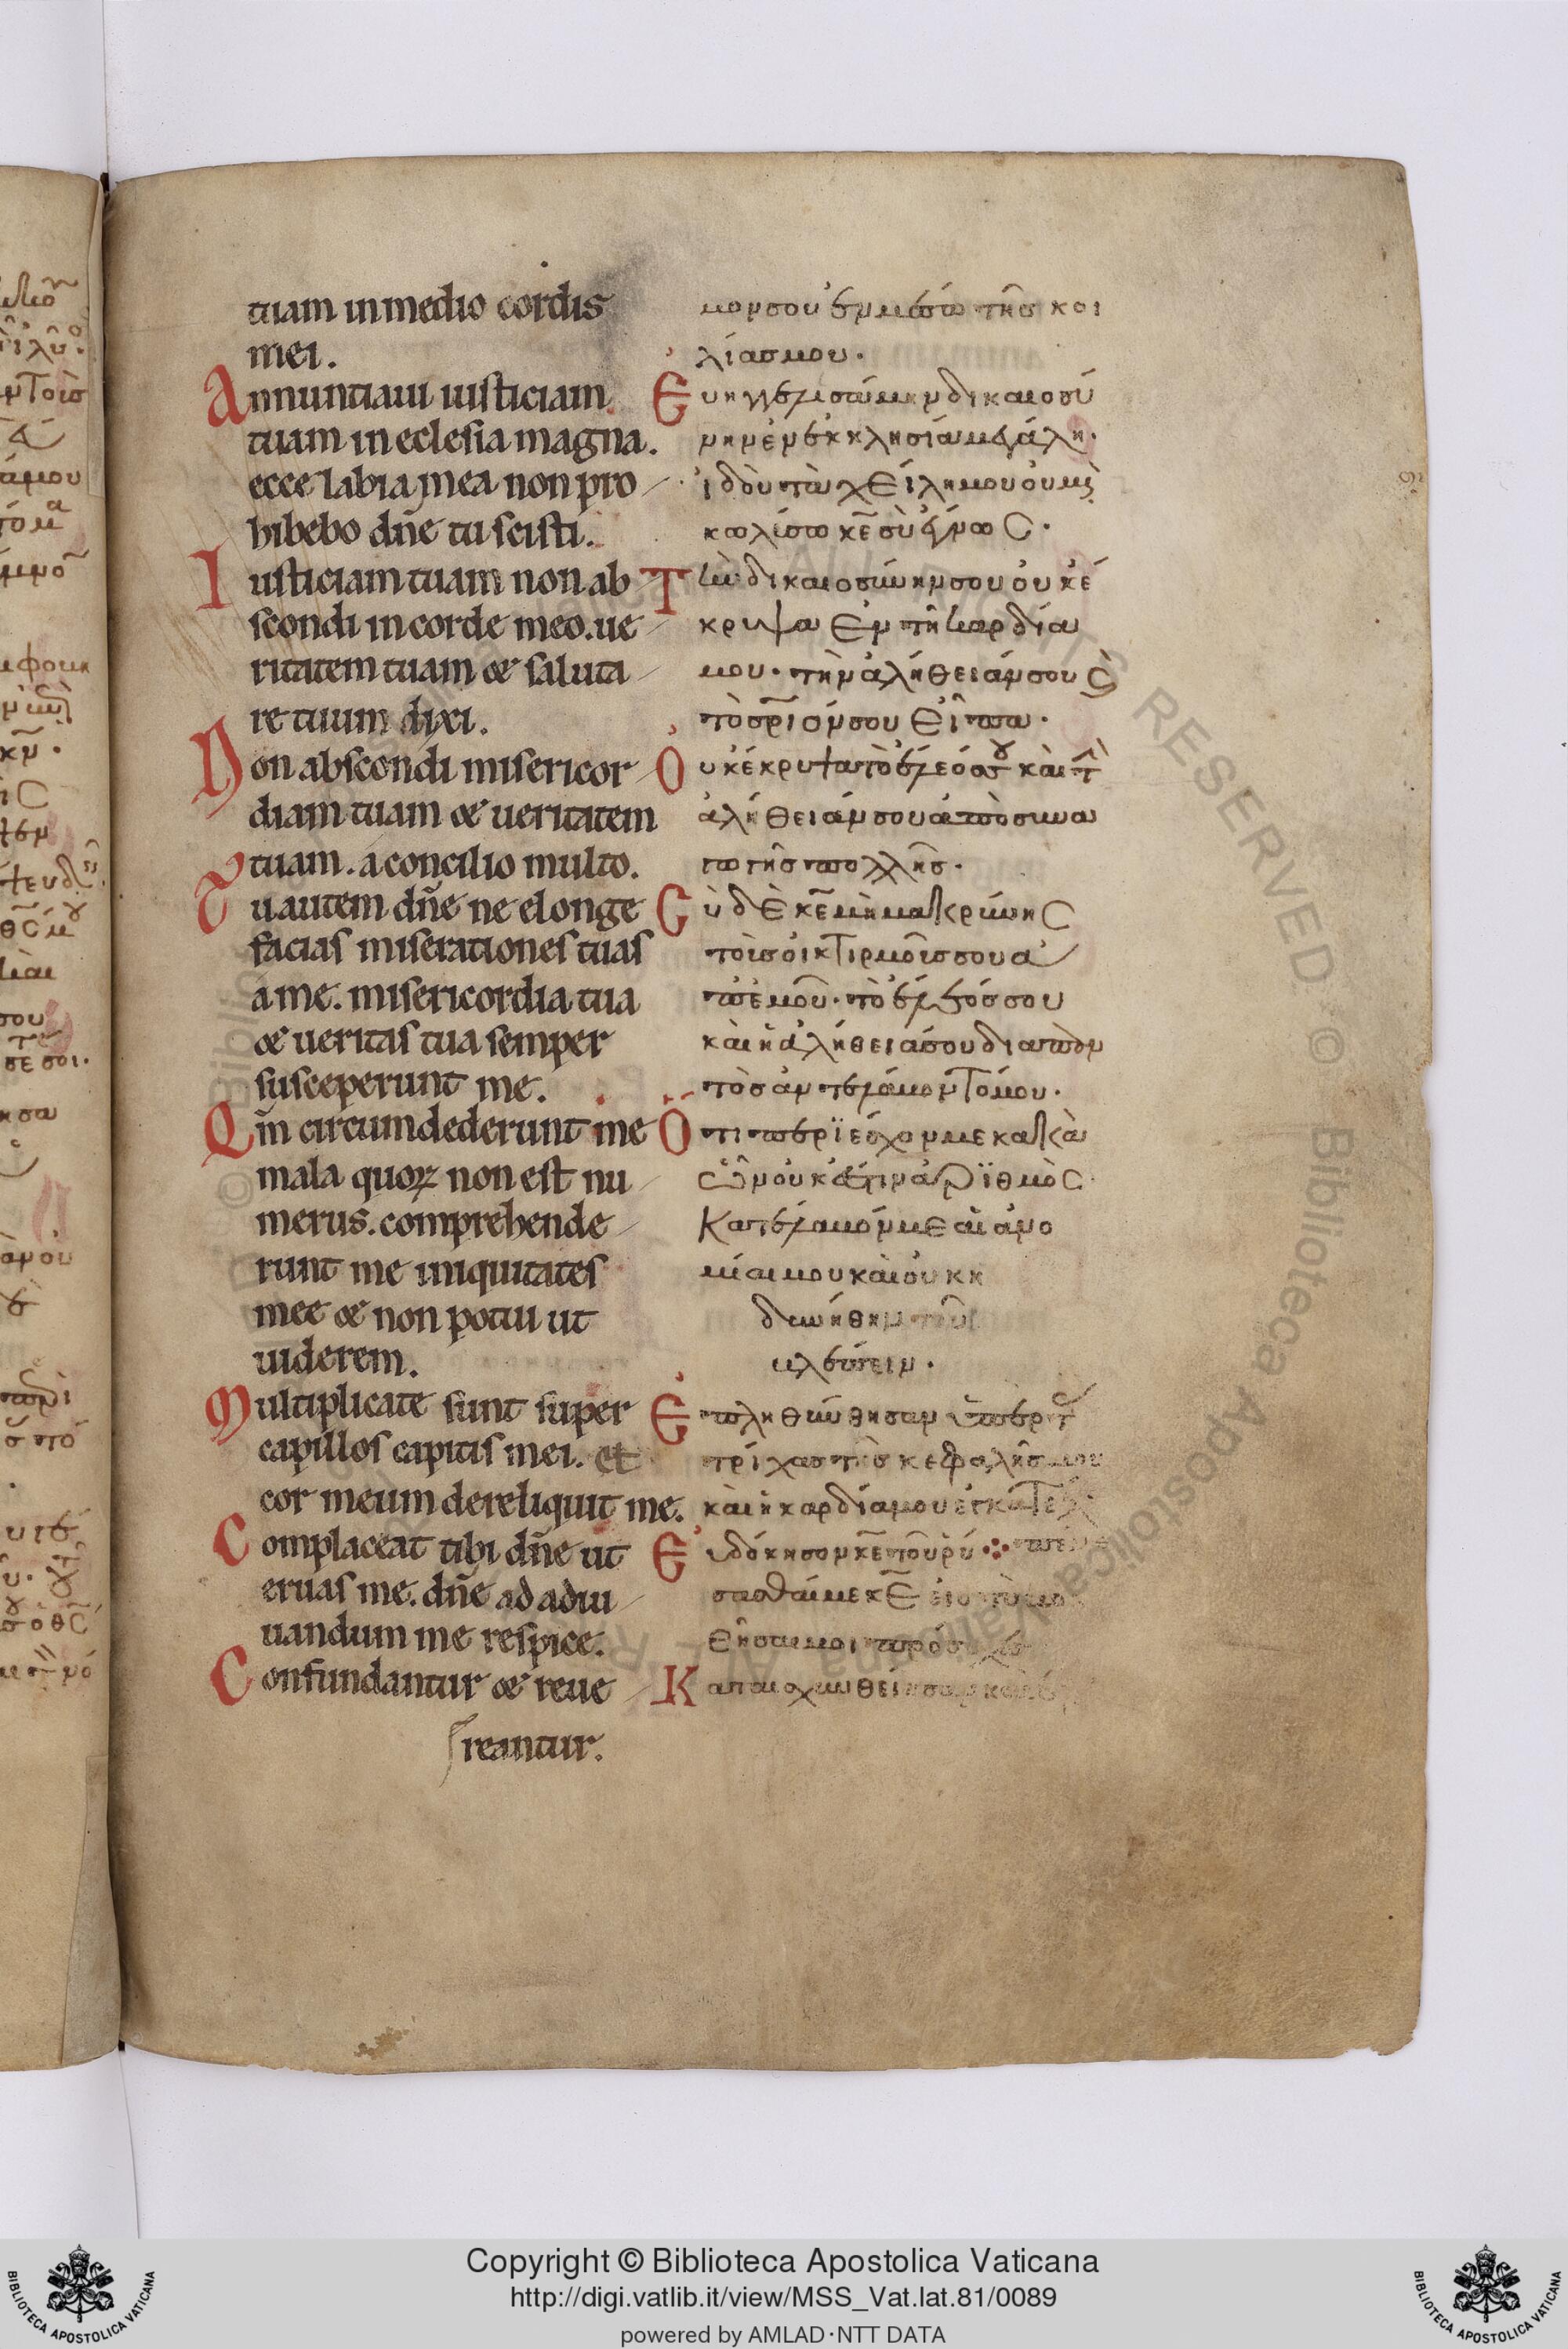 tuam in medio cordis
mei.
Annuntiaui iusticiam
tuam in eclesia magna.
ecce labia mea non pro
hibebo dn̄e tu scisti.
Iusticiam tuam non ab
scondi in corde meo. ue
ritatem tuam & saluta
re tuum dixi.
Non abscondi misericor
diam tuam & ueritatem
tuam. a concilio multo.
Tu autem dn̄e ne elonge
facias miserationes tuas
a me. misericordia tua
& ueritas tua semper
susceperunt me.
Qm̄ circumdederunt me
mala quoꝝ non est nu
merus. comprehende
runt me iniquitates
mee & non potui ut
uiderem.
Multiplicate sunt super
capillos capitis mei. et
cor meum dereliquit me.
Complaceat tibi dn̄e ut
eruas me. dn̄e ad adiu
uandum me respice.
Confundantur & reue
reantur.
μονσου ἐνμέσω τῆσ κοι
λίασμου.
Ἐυηγγελισάμην δικαιοσύ
νην ἐν ἐκκλησία μεγάλη.
ἰδοὺ τὰ χείλημου οὐ μὴ
κωλίσω κ̄ε σὺ ἔγνωσ.
Τὴν δικαιοσύνηνσου ὀυκέ
κρυψα ἐν τῆ καρδία
μου. τὴν ἀλήθειάνσου ϗ
τὸ σρ̄ιόνσου εἶπα.
Ὀυκέκρυψα τὸ ἔλεόσσου καὶ τὴ
ἀλήθειάνσου ἀπὸ συνα
γωγῆσ πολλῆσ.
Σὺ δὲ κ̄ε μὴ μακρύνησ
τοὺσ οἰκτιρμοῦσσου ἀ
π' ἐμοῦ. τὸ ἔλεόσσου
καὶ ἡ ἀλήθειάσου διαπαν
τὸσ ἀντελάβοντόμου.
Ὅτι περϊέσχονμε κακὰ
ὧν ὀυκ ἔστιν ἀρϊθμὸσ
Κατέλαβόνμε αἱ ἀνο
μίαιμου καὶ ὀυκ ἠ
δυνήθην τοῦ
βλέπειν.
Ἐπληθύνθησαν ὑπὲρ τὰσ
τρίχασ τῆσ κεφαλῆσμου
καὶ ἡ καρδίαμου
Ἐυδόκησον κ̄ε τοῦ ῥύ
σασθαίμε κ̄ε εἰσ τὸ βο
ηθῆσαίμοι πρόσχεσ
Καταισχυνθείησαν καὶ
Copyright © Biblioteca Apostolica Vaticana
http://digi.vatlib.it/view/MSS_Vat.lat.81/0089
powered by AMLAD·NTT DATA
BIBLIOTECA APOSTOLICA VATICANA
BIBLIOTECA APOSTOLICA VATICANA